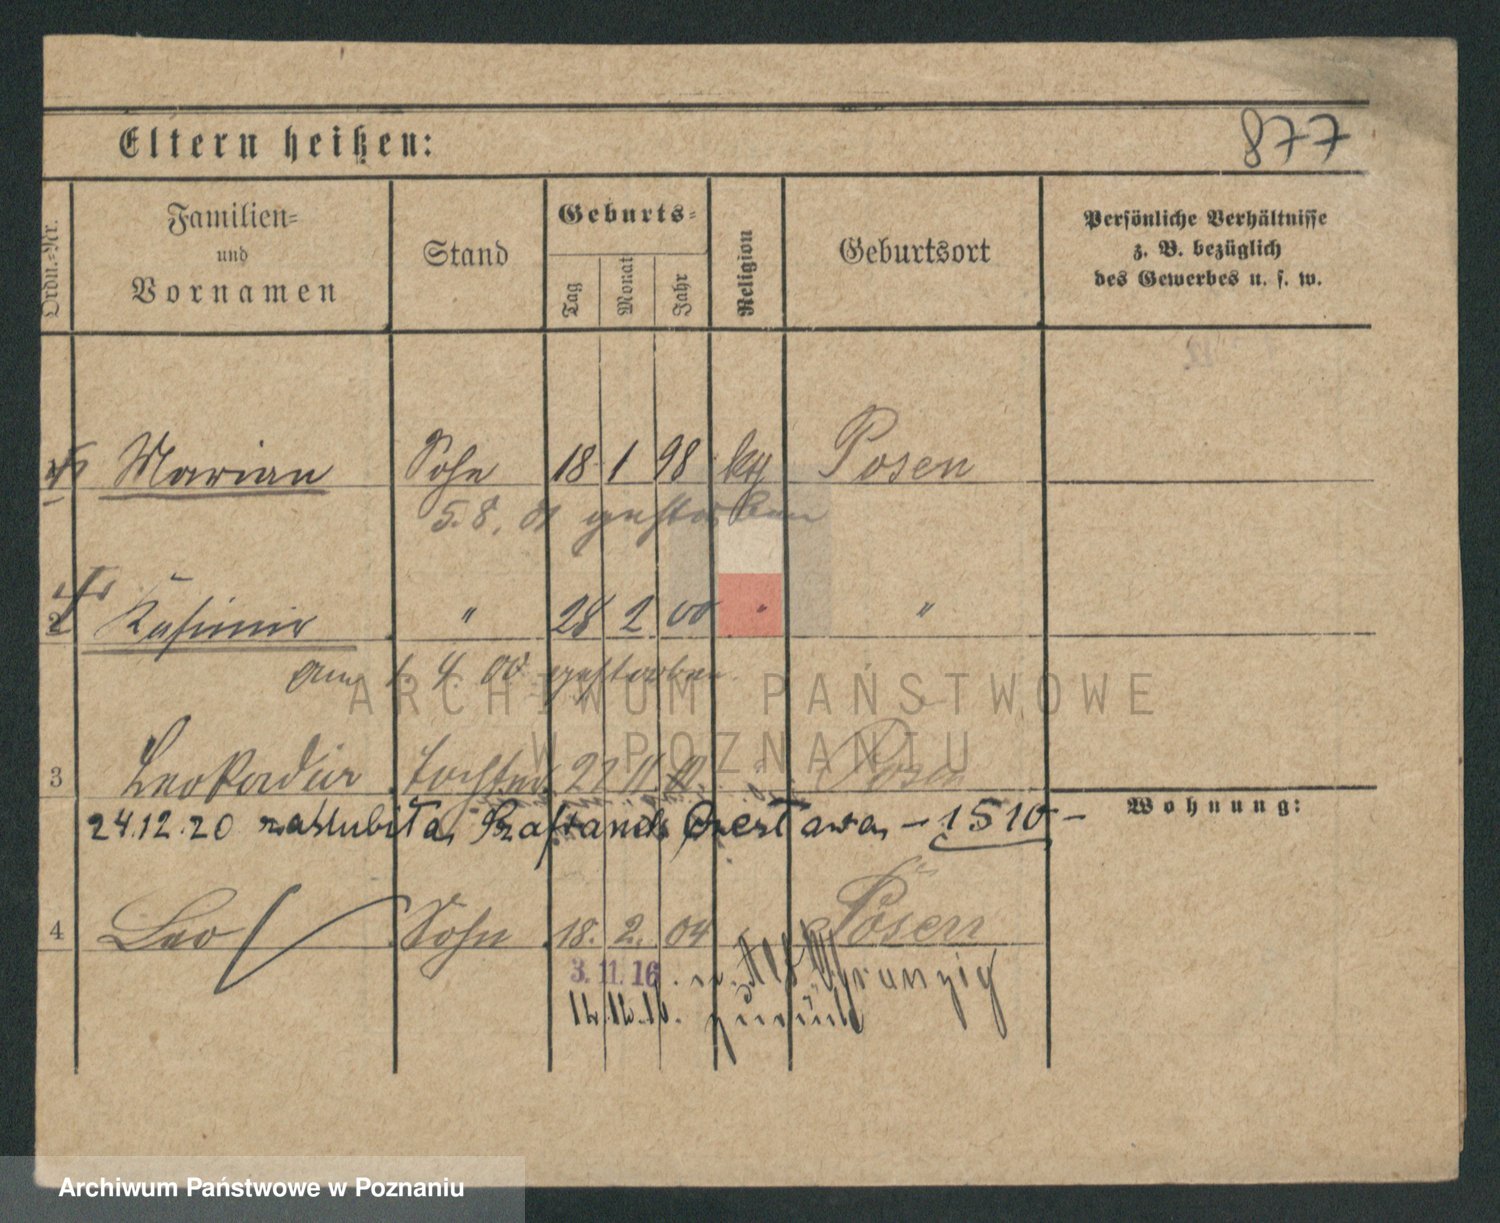 Eltern heißen:
877
Ordn.=Nr.
Familien=
und
Vornamen
Stand
Geburts=
Tag
Monat
Jahr
Religion
Geburtsort
Persönliche Verhältnisse
z. B. bezüglich
des Gewerbes u. s. w.
Marian Sohn 18 1 98 kth Posen
5. 8. gestorben
2 Kasimir " 28 2 00 " "
am 1. 4. 00 gestorben
3 Leokadia Tochter 22 11 Posen
24.12.20 zaślubiła - 1510 -
Wohnung:
4 Leo Sohn 18. 2. 04 Posen
3.11.16. n.
12.12.16. zurück
ARCHIWUM PAŃSTWOWE
W POZNANIU
Archiwum Państwowe w Poznaniu